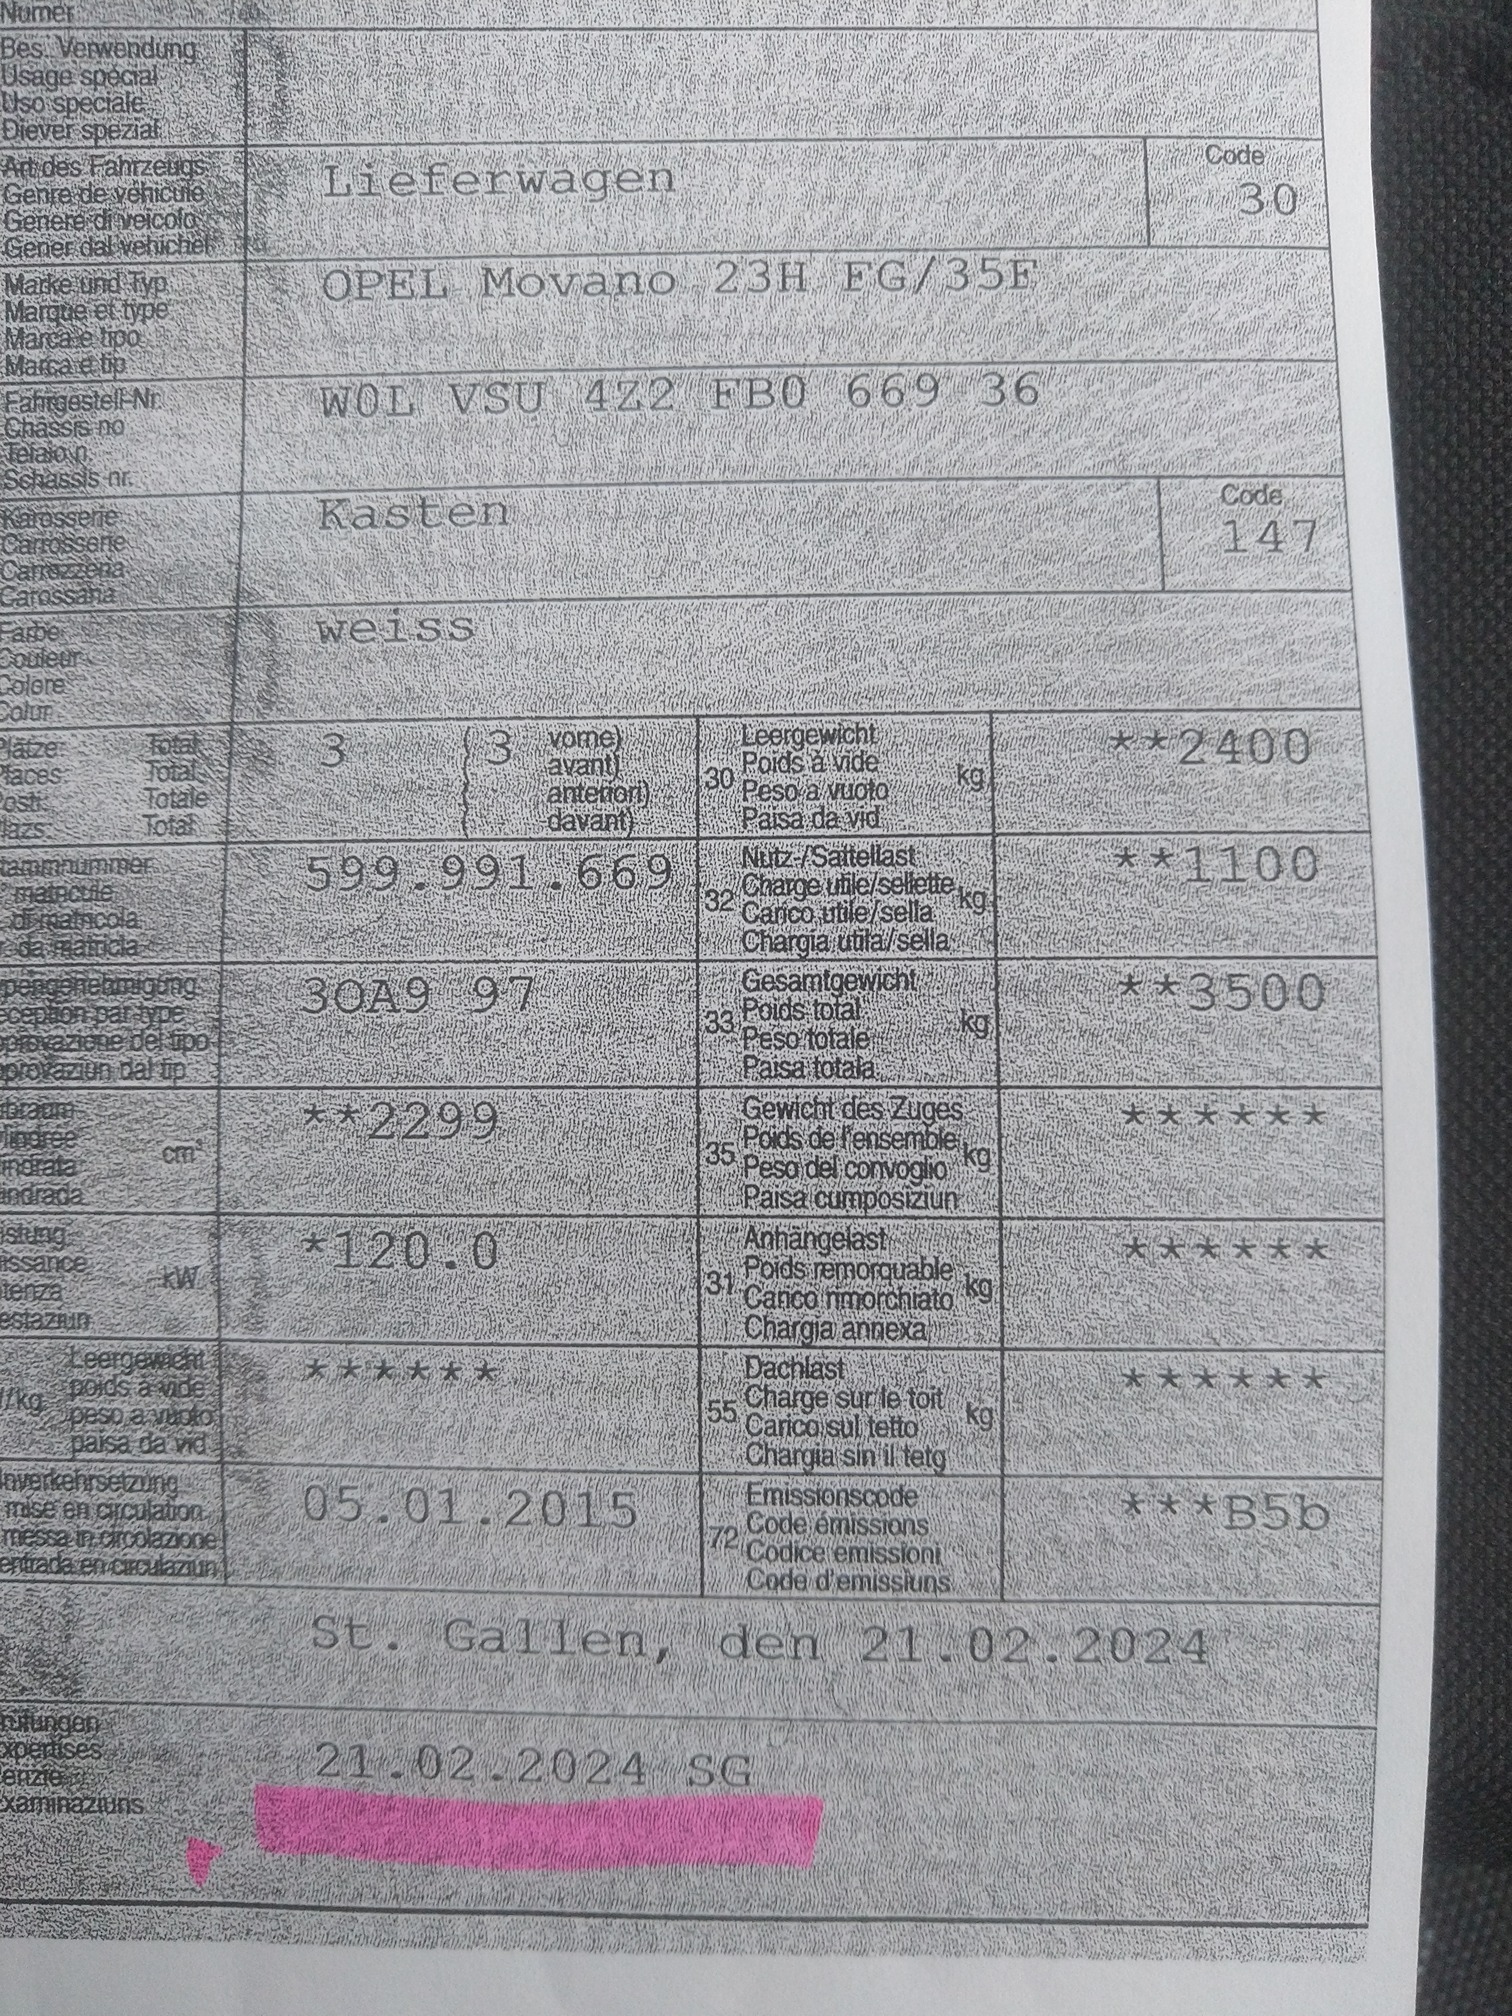 Numer
Bes. Verwendung
Usage spécial
Uso speciale
Diever spezial
Art des Fahrzeugs
Genre de véhicule
Genere di veicolo
Gener dal vehichel
Lieferwagen
Code
30
Marke und Typ
Marque et type
Marca e tipo
Marca e tip
OPEL Movano 23H FG/35F
Fahrgestell-Nr.
Châssis no
Telaio n.
Schassis nr.
W0L VSU 4Z2 FB0 669 36
Karosserie
Carrosserie
Carrozzeria
Carossaria
Kasten
Code
147
Farbe
Couleur
Colore
Colur
weiss
lätze Total
laces Total
osti Totale
lazs Total
3 (3 vorne)
avant)
anteriori)
davant)
30 Leergewicht
Poids à vide
Peso a vuoto
Paisa da vid
kg
**2400
tammnummer
matricule
di matricola
da matricla
599.991.669
32 Nutz-/Sattellast
Charge utile/sellette
Carico utile/sella
Chargia utila/sella
kg
**1100
pengenehmigung
ception par type
provazione del tipo
provaziun dal tip
3OA9 97
33 Gesamtgewicht
Poids total
Peso totale
Paisa totala
kg
**3500
braum
lindrée
indrata
indrada
cm³
**2299
35 Gewicht des Zuges
Poids de l'ensemble
Peso del convoglio
Paisa cumposiziun
kg
******
istung
issance
tenza
estaziun
kW
*120.0
31 Anhängelast
Poids remorquable
Carico rimorchiato
Chargia annexa
kg
******
/kg
Leergewicht
poids à vide
peso a vuoto
paisa da vid
******
55 Dachlast
Charge sur le toit
Carico sul tetto
Chargia sin il tetg
kg
******
Inverkehrsetzung
mise en circulation
messa in circolazione
entrada en circulaziun
05.01.2015
72 Emissionscode
Code émissions
Codice emissioni
Code d'emissiuns
***B5b
St. Gallen, den 21.02.2024
rüfungen
xpertises
enzie
xaminaziuns
21.02.2024 SG